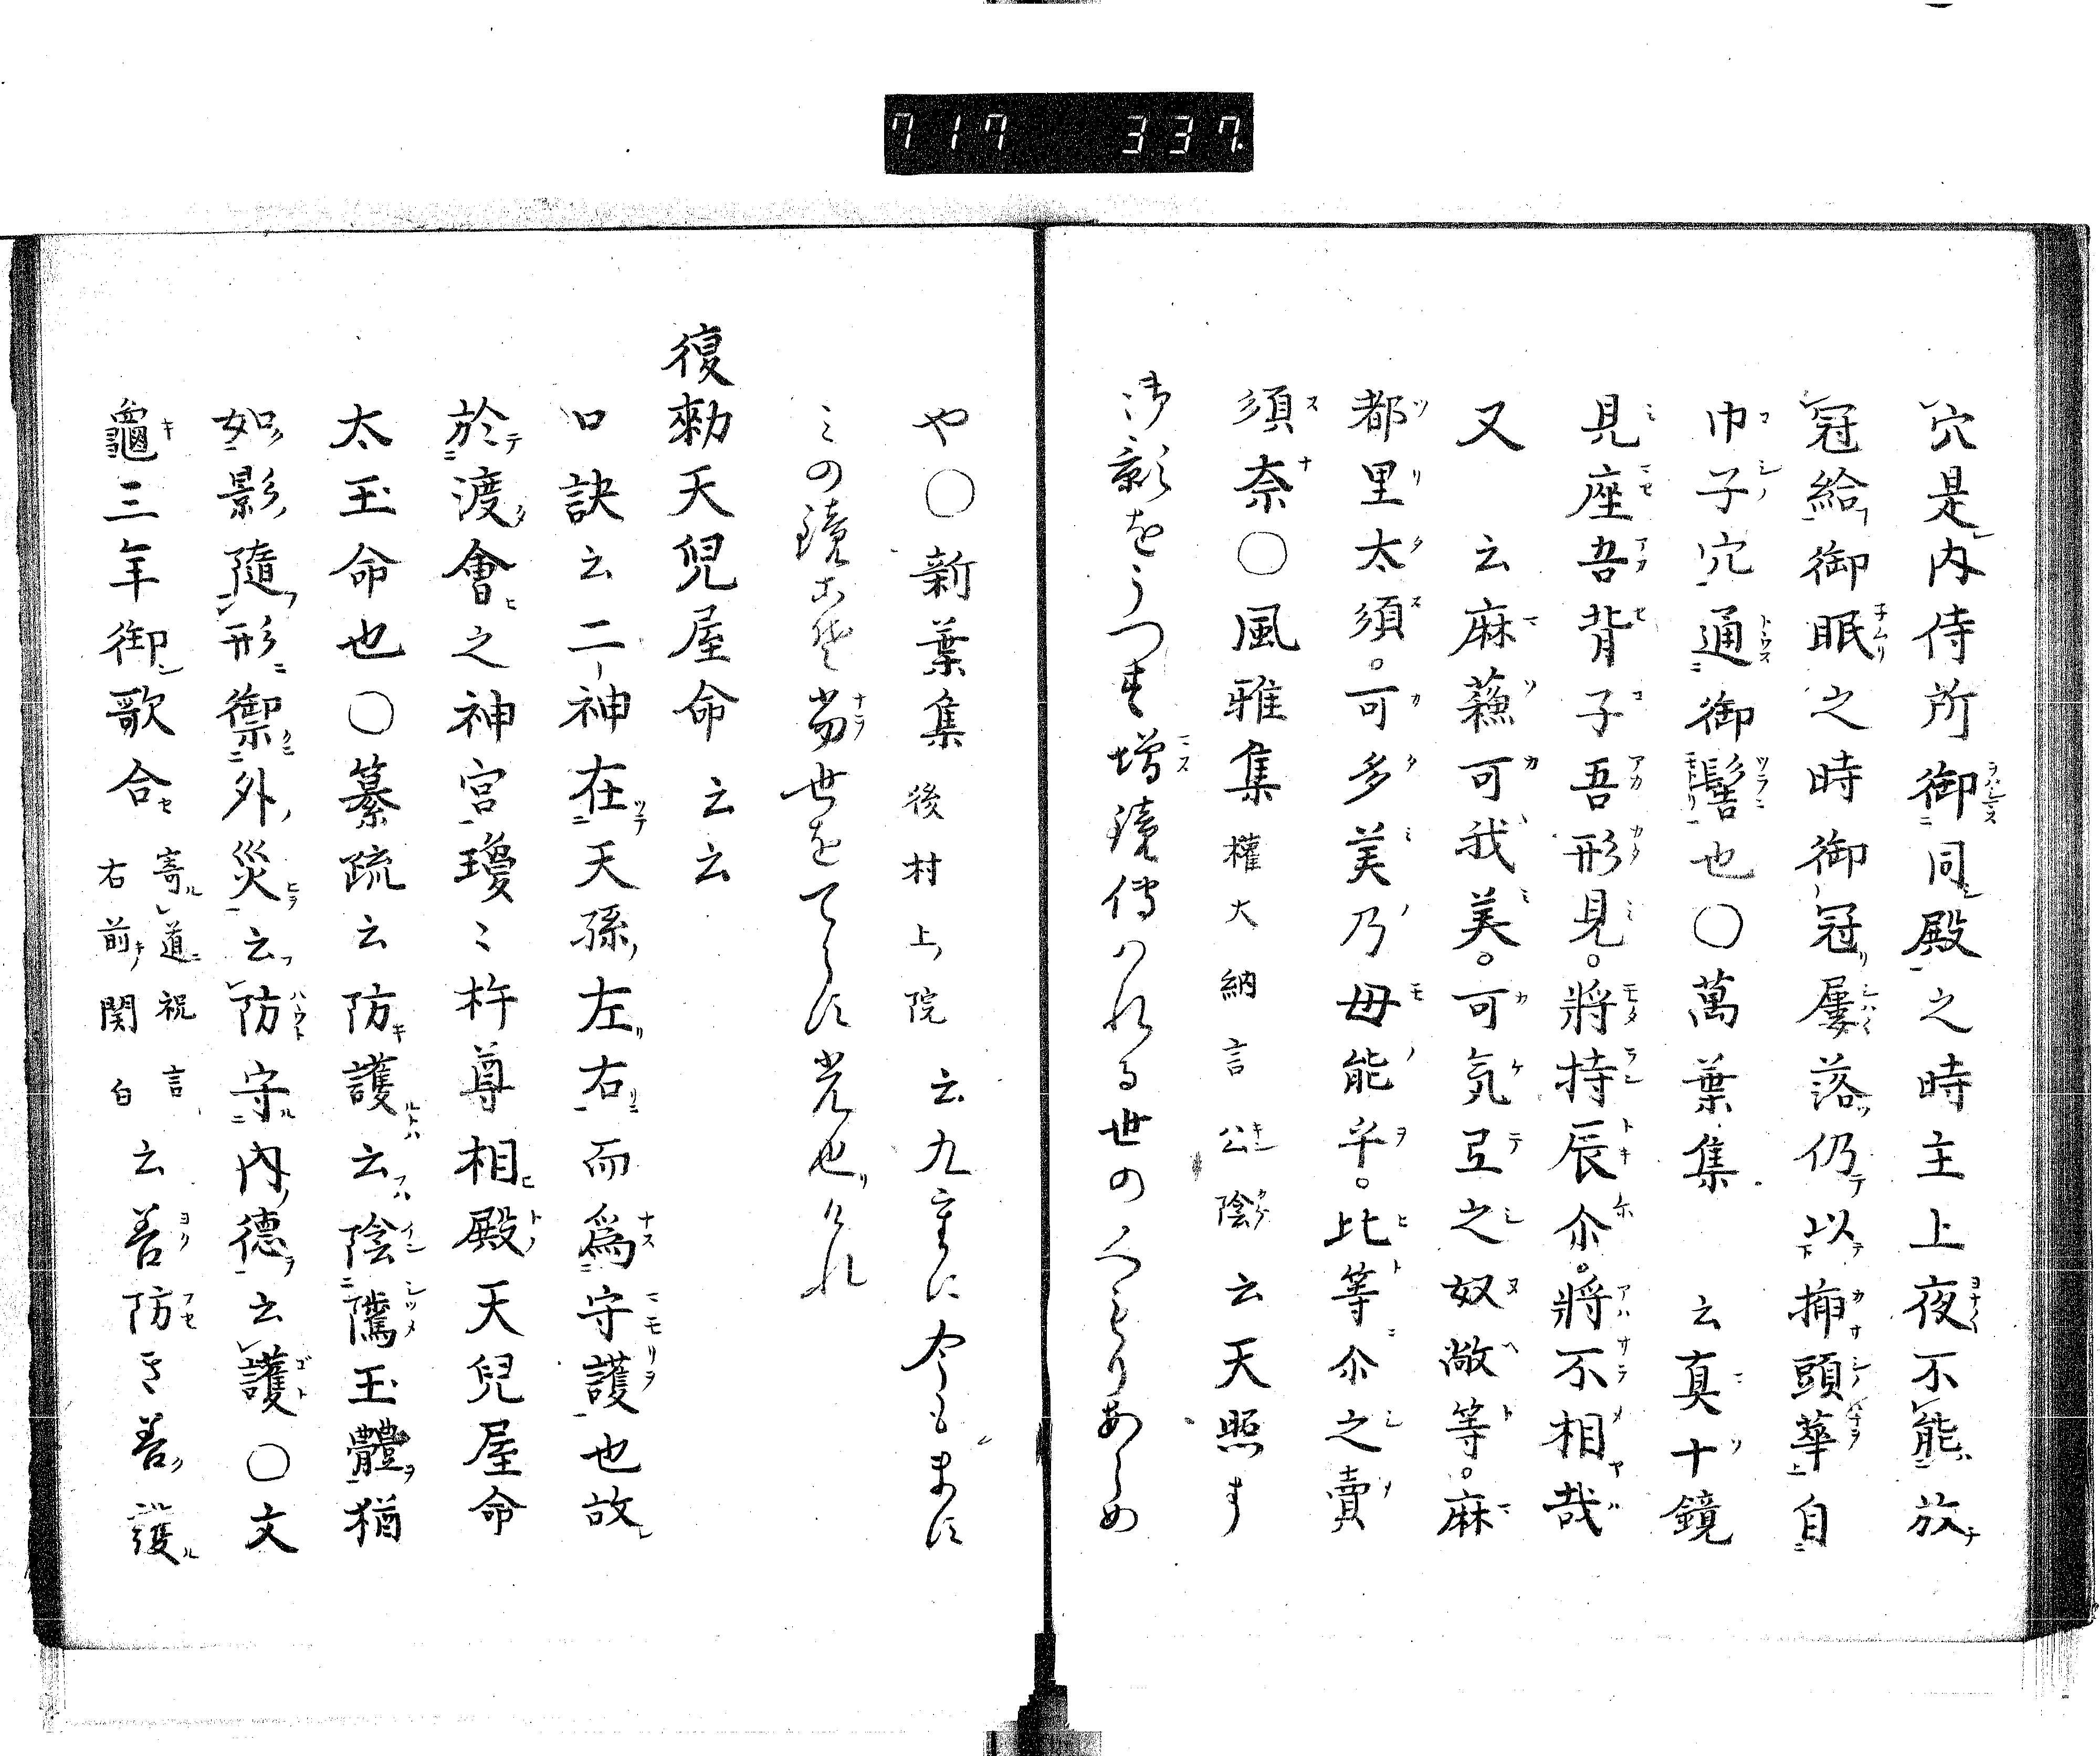 717 337
穴是内侍所御同殿之時主上夜不能放
冠給御眠之時御冠屢落仍以挿頭華自
巾子穴通御髻也〇萬葉集 云真十鏡
見座吾背子吾形見。將持辰尒。將不相哉
又 云麻蘓可我美。可気弖之奴敝等。麻
都里太須。可多美乃母能乎。比等尒之賣
須奈〇風雅集權大納言公陰云天照す
御影をうつす増鏡傳はれる世のくもりあらめ
や〇新葉集後村上院云九重に今もますみ
の鏡こそ尚世をてらす光也けれ
復勅天兒屋命 云云
口訣云二神在天孫左右而為守護也故
於渡會之神宮瓊〻杵尊相殿天兒屋命
太玉命也〇纂疏云防護云陰隲玉體猶
如影隨形禦外災云防守内德云護〇文
龜三年御歌合寄道祝言
右前関白云善防き善護